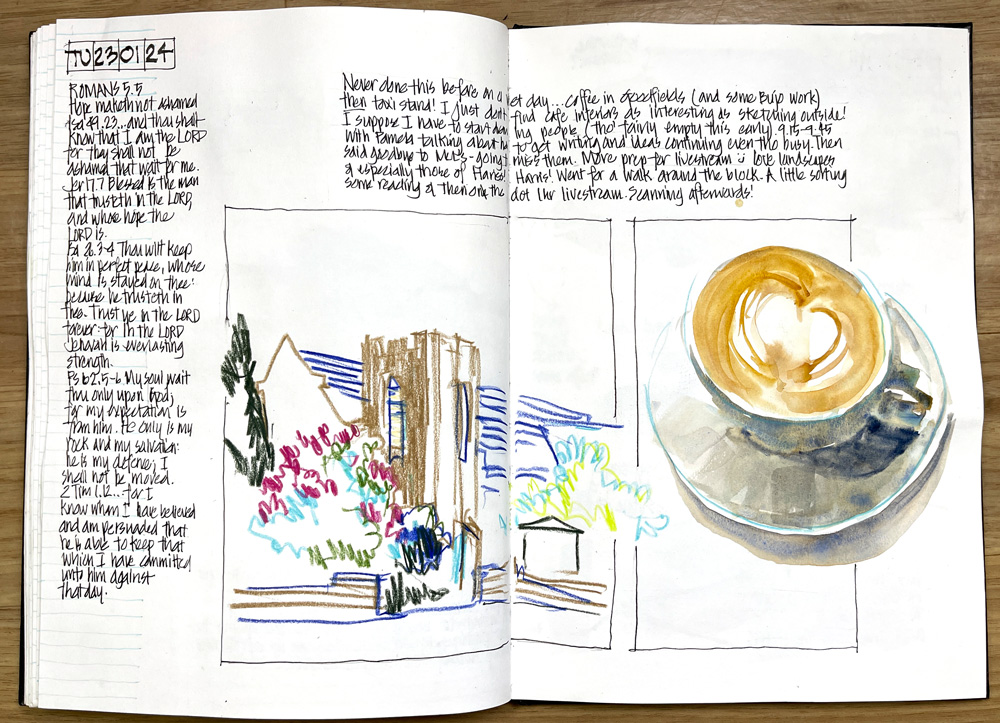 TU 23 01 24
ROMANS 5.5
Hope maketh not ashamed
Isa 49.23...and thou shalt
know that I am the LORD
for they shall not be
ashamed that wait for me.
Jer 17.7 Blessed is the man
that trusteth in the LORD,
and whose hope the
LORD is.
Isa 26.3-4 Thou wilt keep
him in perfect peace, whose
mind is stayed on thee:
because he trusteth in
thee. Trust ye in the LORD
forever-for in the LORD
Jehovah is everlasting
strength.
Ps 62.5-6 My soul wait
thou only upon God;
for my expectation is
from him. He only is my
rock and my salvation:
he is my defence; I
shall not be moved.
2 Tim 1.12... for I
know whom I have believed
and am persuaded that
he is able to keep that
which I have committed
unto him against
that day.
Never done this before on a wet day...coffee in (and some BuJo work)
then taxi stand! I just don't find cafe interiors as interesting as sketching outside!
I suppose I have to start people (tho' fairly empty this early) 9.15-9.45
with Pamela talking about to get writing and ideas continuing even tho busy. Then
said goodbye to - going miss them. More prep for livestream love landscapes
& especially those of Harris! Went for a walk around the block. A little sorting
some reading & then one, the dot 1hr livestream. Scanning afterwards!